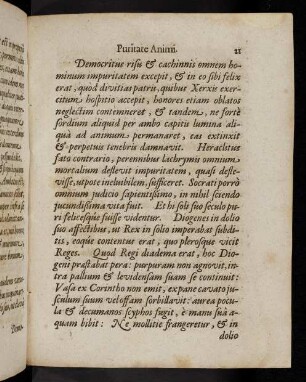 Puritate Animi. 21
Democritus risu & cachinnis omnem ho-
minum impuritatem excepit, & in eo sibi felix
erat, quod divitias patris, quibus Xerxis exer-
citum hospitio accepit, honores etiam oblatos
neglectim contemneret, & tandem, ne fortè
sordium aliquid per ambo capitis lumina ali-
quà ad animum permanaret, eas extinxit
& perpetuis tenebris damnavit. Heraclitus
fato contrario, perennibus lachrymis omnium
mortalium deflevit impuritatem, quasi defle-
visse, utpote ineluibilem, sufficeret. Socrati porrò
omnium judicio sapientissimo, in nihil sciendo
jucundissima vita fuit. Et hi soli suo seculo pu-
ri felicesque fuisse videntur. Diogenes in dolio
suo affectibus, ut Rex in solio imperabat subdi-
tis, eoque contentus erat, quo plerosque vicit
Reges. Quod Regi diadema erat, hoc Dio-
geni præstabat pera: purpuram non agnovit, in-
tra pallium & levidensam suam se continuit:
Vasa ex Corintho non emit, expane cavato ju-
sculum suum velossam sorbillavit: aurea pocu-
la & decumanos scyphos fugit, è manu suâ a-
quam bibit: Ne mollitie frangeretur, & in
dolio